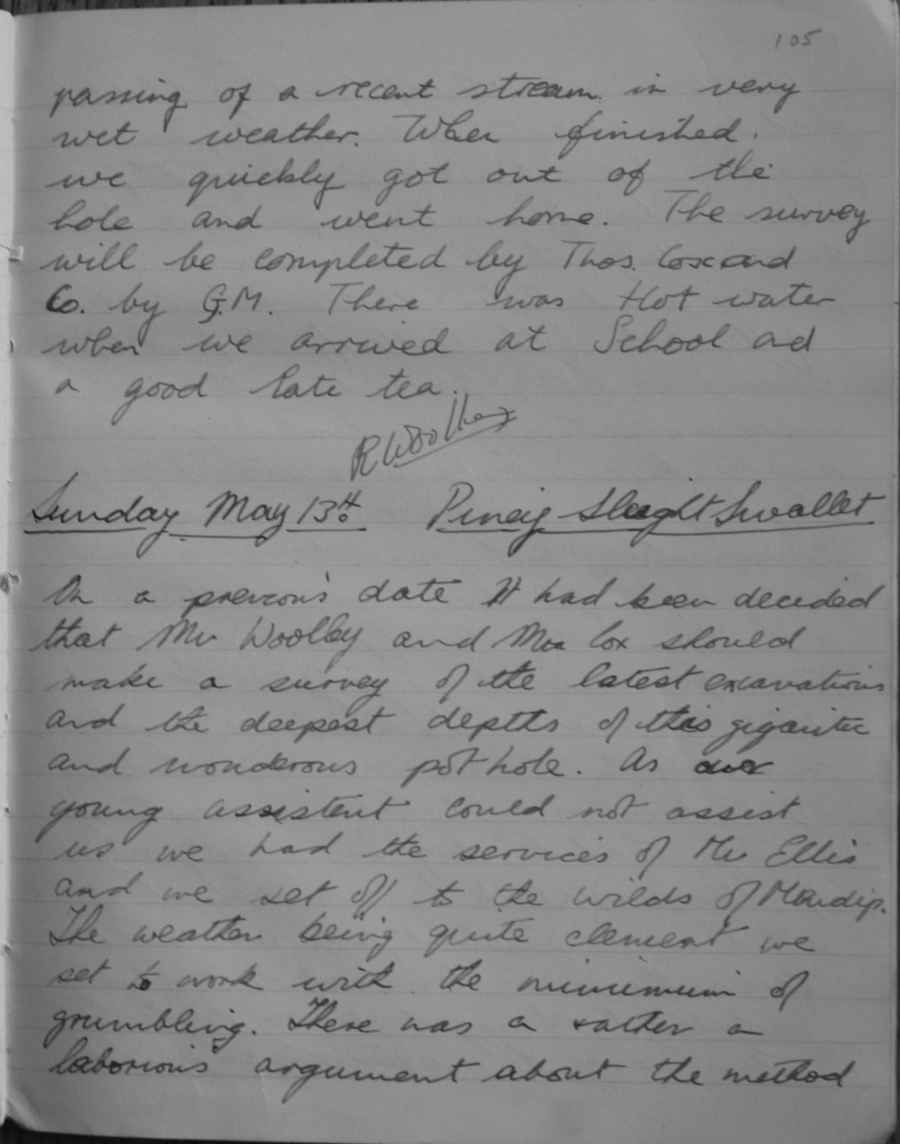 105
passing of a recent stream in very
wet weather. When finished.
we quickly got out of the
hole and went home. The survey
will be completed by Thos. Cox and
Co. by G.M. There was Hot water
when we arrived at School ad
a good late tea.
R Woolley
Sunday May 13th Pineig Sleight Swallet
On a previous date It had been decided
that Mr Woolley and Mr Cox should
make a survey of the latest excavations
and the deepest depths of this gigantic
and wonderous pot hole. As our
young assistent could not assist
us we had the services of Mr Ellis
and we set off to the wilds of Mendip.
The weather being quite clement we
set to work with the minimum of
grumbling. There was a rather a
laborious argument about the method